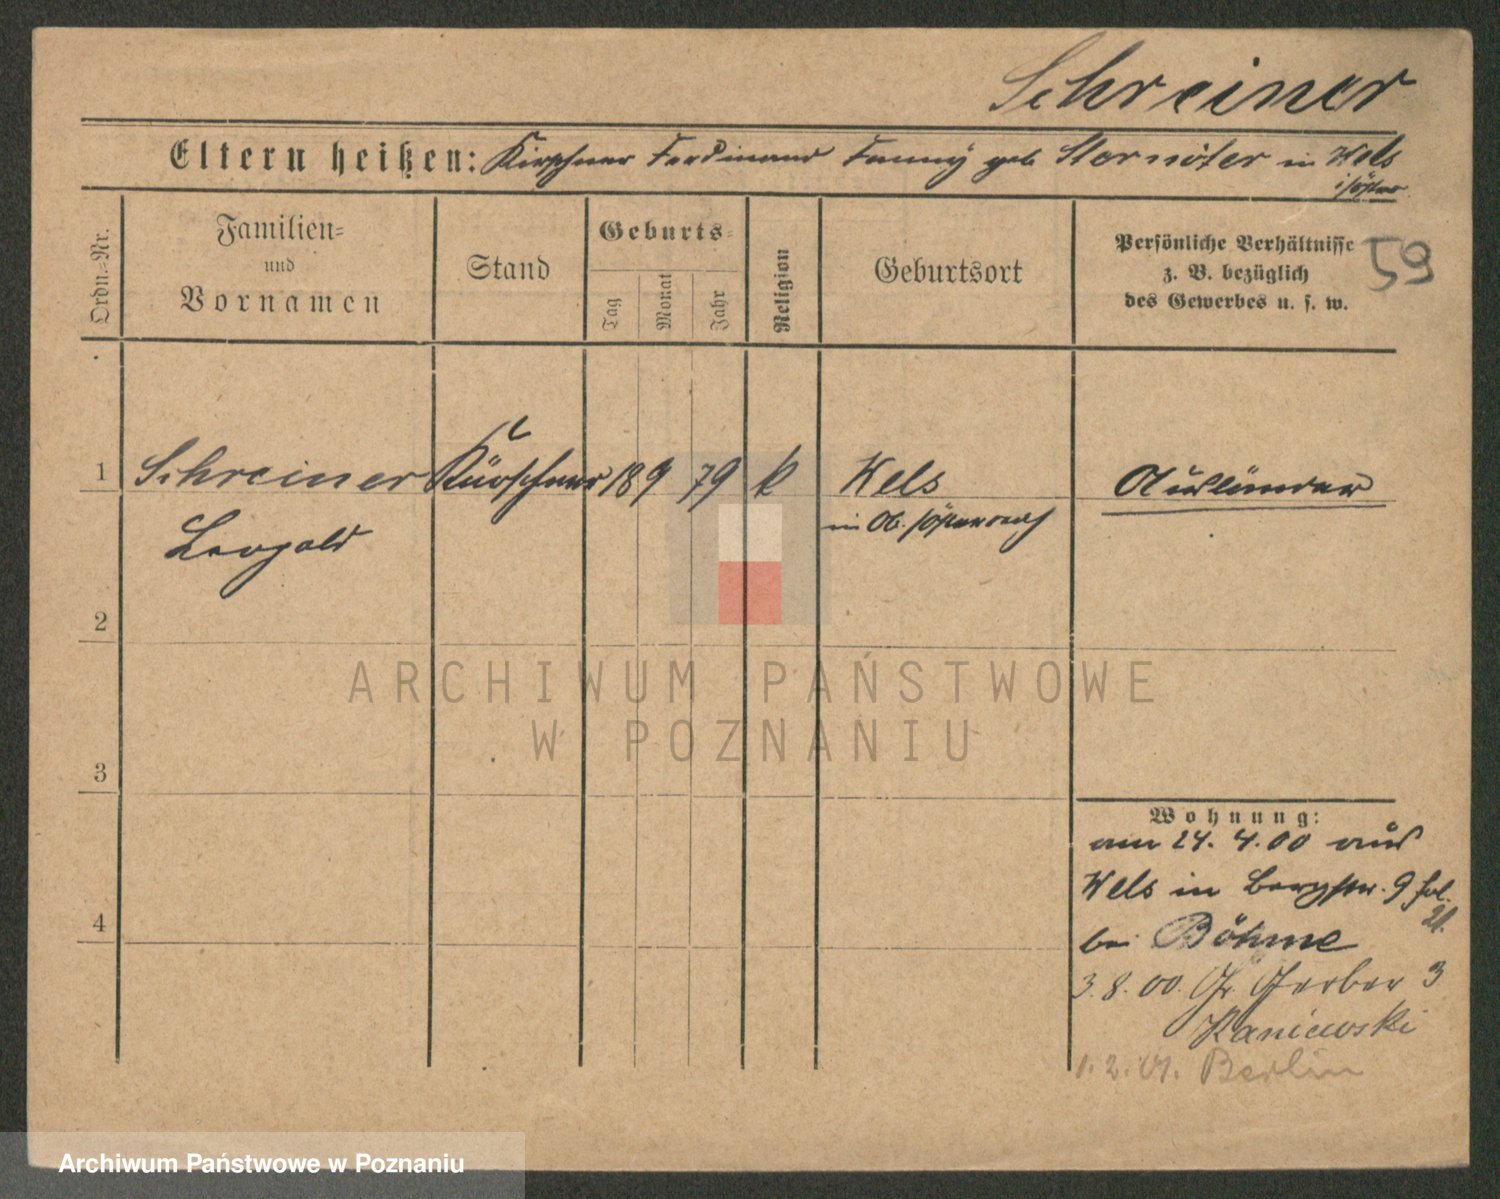 Schreiner
Eltern heißen: Kirschner Ferdinand Fanny geb. Sternöter in Wels
i/Öster
Ordn.=Nr.
Familien=
und
Vornamen
Stand
Geburts=
Tag
Monat
Jahr
Religion
Geburtsort
Persönliche Verhältnisse
z. B. bezüglich
des Gewerbes u. s. w.
59
1 Schreiner Kürschner 18 9 79 k Wels Ausländer
Leopold in Ob. /Österreich
2
3
4
Wohnung:
am 24. 4. 00 aus
Wels in Bergstr. 9
bei Böhme
3. 8. 00. Gr Gerber 3
Kaniewski
1. 2. 01. Berlin
ARCHIWUM PAŃSTWOWE
W POZNANIU
Archiwum Państwowe w Poznaniu